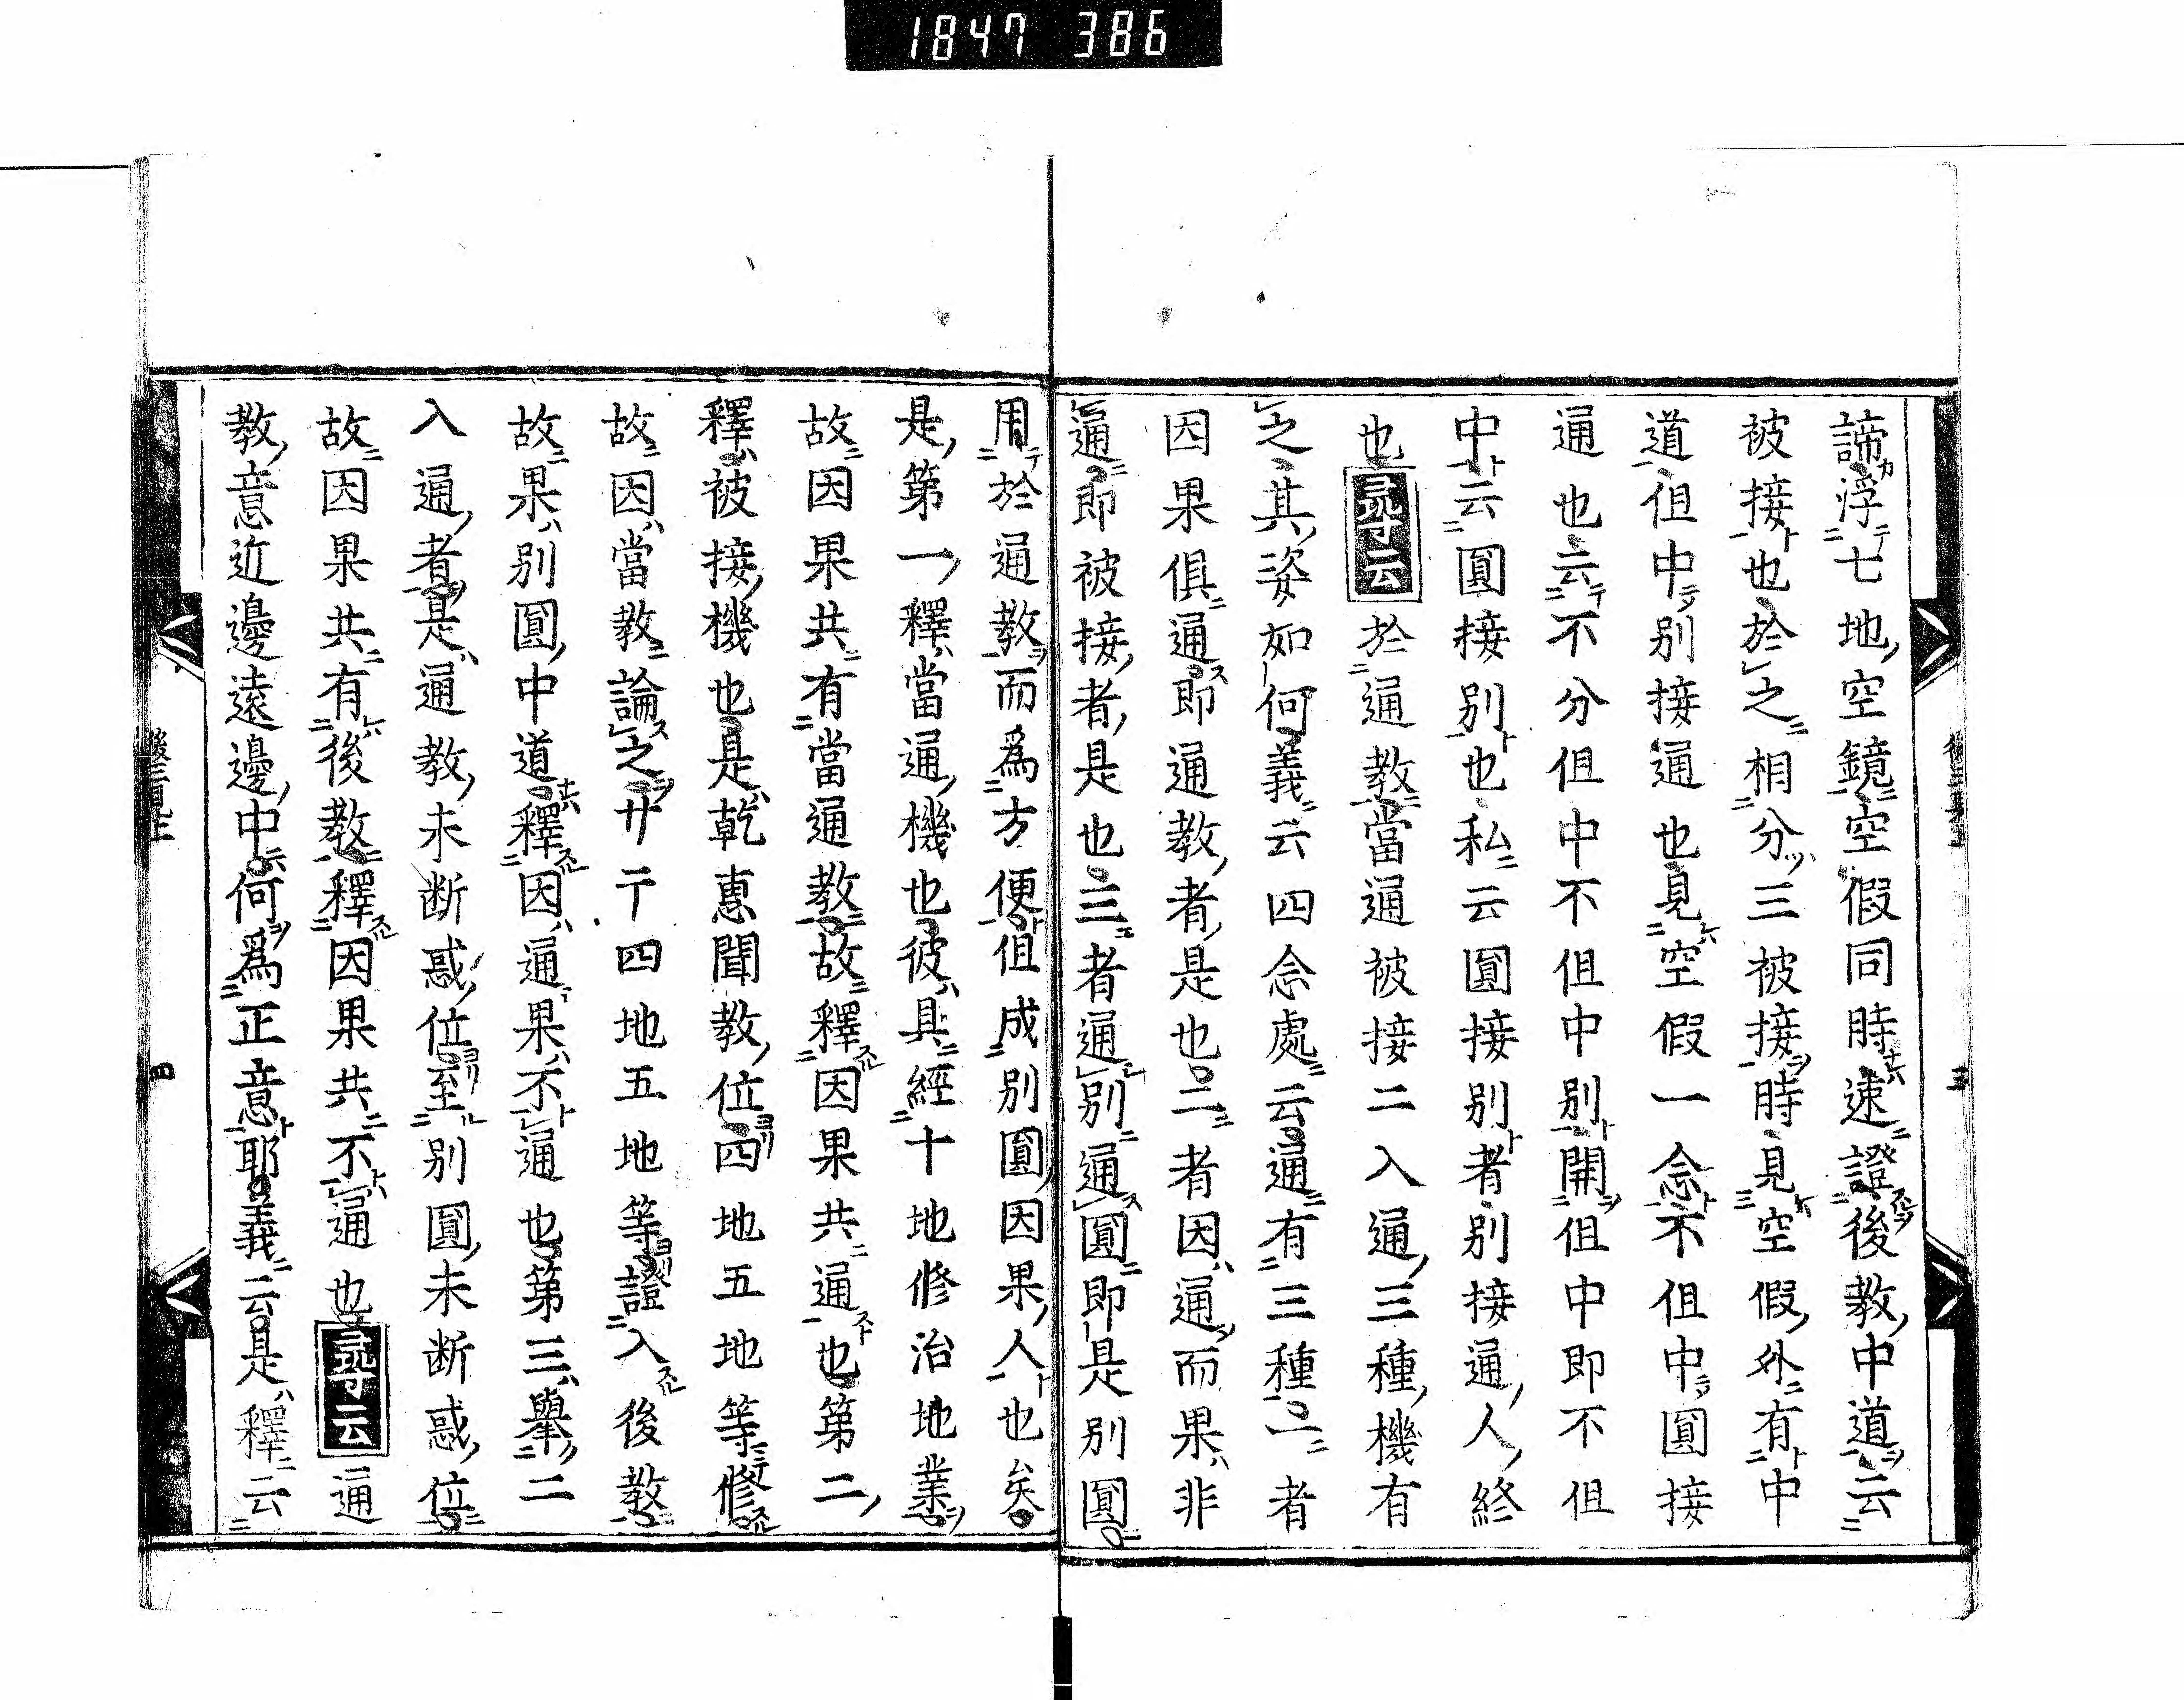 1847 386
諦浮七地空鏡空空假同時速證後教中道云
被接也於之相分三被接時見空假外有中
道但中別接通也見空假一念不但中圓接
通也云不分但中不但中別開但中即不但
中云圓接別也私云圓接別者別接通人終
也尋云於通教當通被接二入通三種機有
之其姿如何義云四念處云通有三種一者
因果俱通即通教者是也二者因通而果非
通即被接者是也三者通別通圓即是別圓
用於通教而爲方便但成別圓因果人也矣
是第一釋當通機也彼具經十地修治地業
故因果共有當通教故釋因果共通也第二
釋被接機也是乾惠聞教位四地五地等修
故因當教論之廿二千四地五地等證入後教
故果別圓中道釋因通果不通也第三擧二
入通者是通教未断惑位至別圓未断惑位
故因果共有後教釋因果共不通也尋云通
教意近邊遠邊中何爲正意耶義云是釋云
三
四